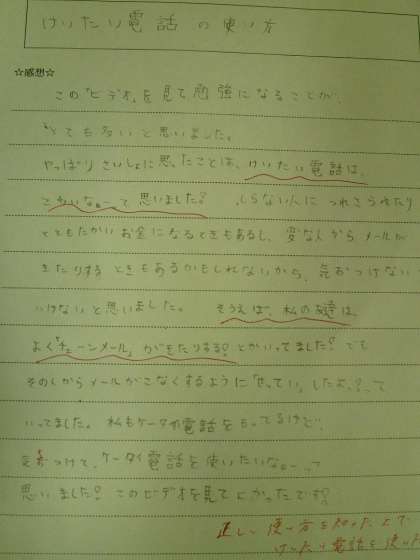 けいたい電話の使い方
☆感想☆
この「ビデオ」を見て勉強になることが、
とても多いと思いました。
やっぱりさいしょに思ったことは、けいたい電話は、
こわいなぁーって思いました? しらない人につれさられたり
とてもたかいお金になるときもあるし、変な人から、メールが
きたりするときもあるかもしれないから、気おつけない
いけないと思いました。 そうえば、私の友達は、
よく「チェーンメール」がきたりする?とかいってました?でも
そのしからメールがこなくするように「せってい」したよ?って
いってました。私もケータイ電話をもってるけど、
気おつけて、ケータイ電話を使いたいなぁーって
思いました?このビデオを見てよかったです?
正しい使い方を知った上で
けいたい電話を使い